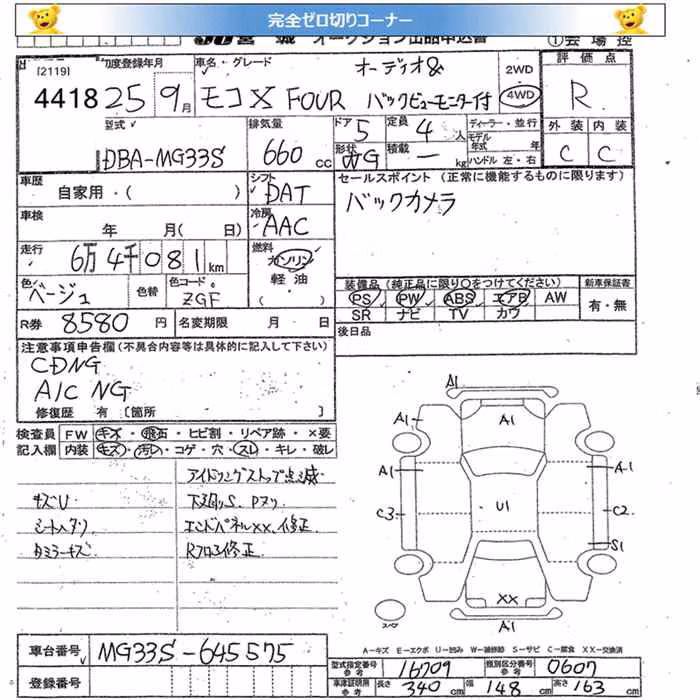 完全ゼロ切りコーナー
宮 城 オークション出品申込書
①会場控
[2119]
4418
初度登録年月
25 9月
車名・グレード
モコX FOUR
オーディオ&
バックビューモニター付
2WD
4WD
評価点
R
型式
DBA-MG33S
排気量
660 cc
ドア 5
形状 5DW
定員 4 人
積載 ー kg
ディーラー・並行
モデル年式 年
ハンドル 左・右
外装 内装
C C
車歴
自家用・( )
シフト
DAT
セールスポイント (正常に機能するものに限ります)
バックカメラ
車検
年 月( 日)
冷房
AAC
走行
6万4千081km
燃料
ガソリン
軽油
( )
色
ベージュ
色替
色コード
ZGF
装備品 (純正品に限り○をつけてください)
PS PW ABS エアB AW
SR ナビ TV カワ
新車保証書
有・無
R券 8580 円
名変期限 月 日
後日品
注意事項申告欄 (不具合内容等は具体的に記入して下さい)
CDNG
A/C NG
修復歴 有 〔箇所 〕
検査員記入欄
FW キズ・飛石・ヒビ割・リペア跡・×要
内装 キズ・汚レ・コゲ・穴・スレ・キレ・破レ
アイドリングストップ点滅
キズU 下廻りS、Pヌリ
シートヘタリ エンドパネルXX、修正
タミラーキズ Rフロア修正
A1
A1 A1
A1 A-1
C3 U1 C2
S1
XX
スペア
A1
車台番号 MG33S-645575
登録番号
A-キズ E-エクボ U-凹み W-補修跡 S-サビ C-腐食 XX-交換済
型式指定番号 参考 16709
類別区分番号 参考 0607
車庫証明用 参考 長さ 340 cm 幅 148 cm 高さ 163 cm